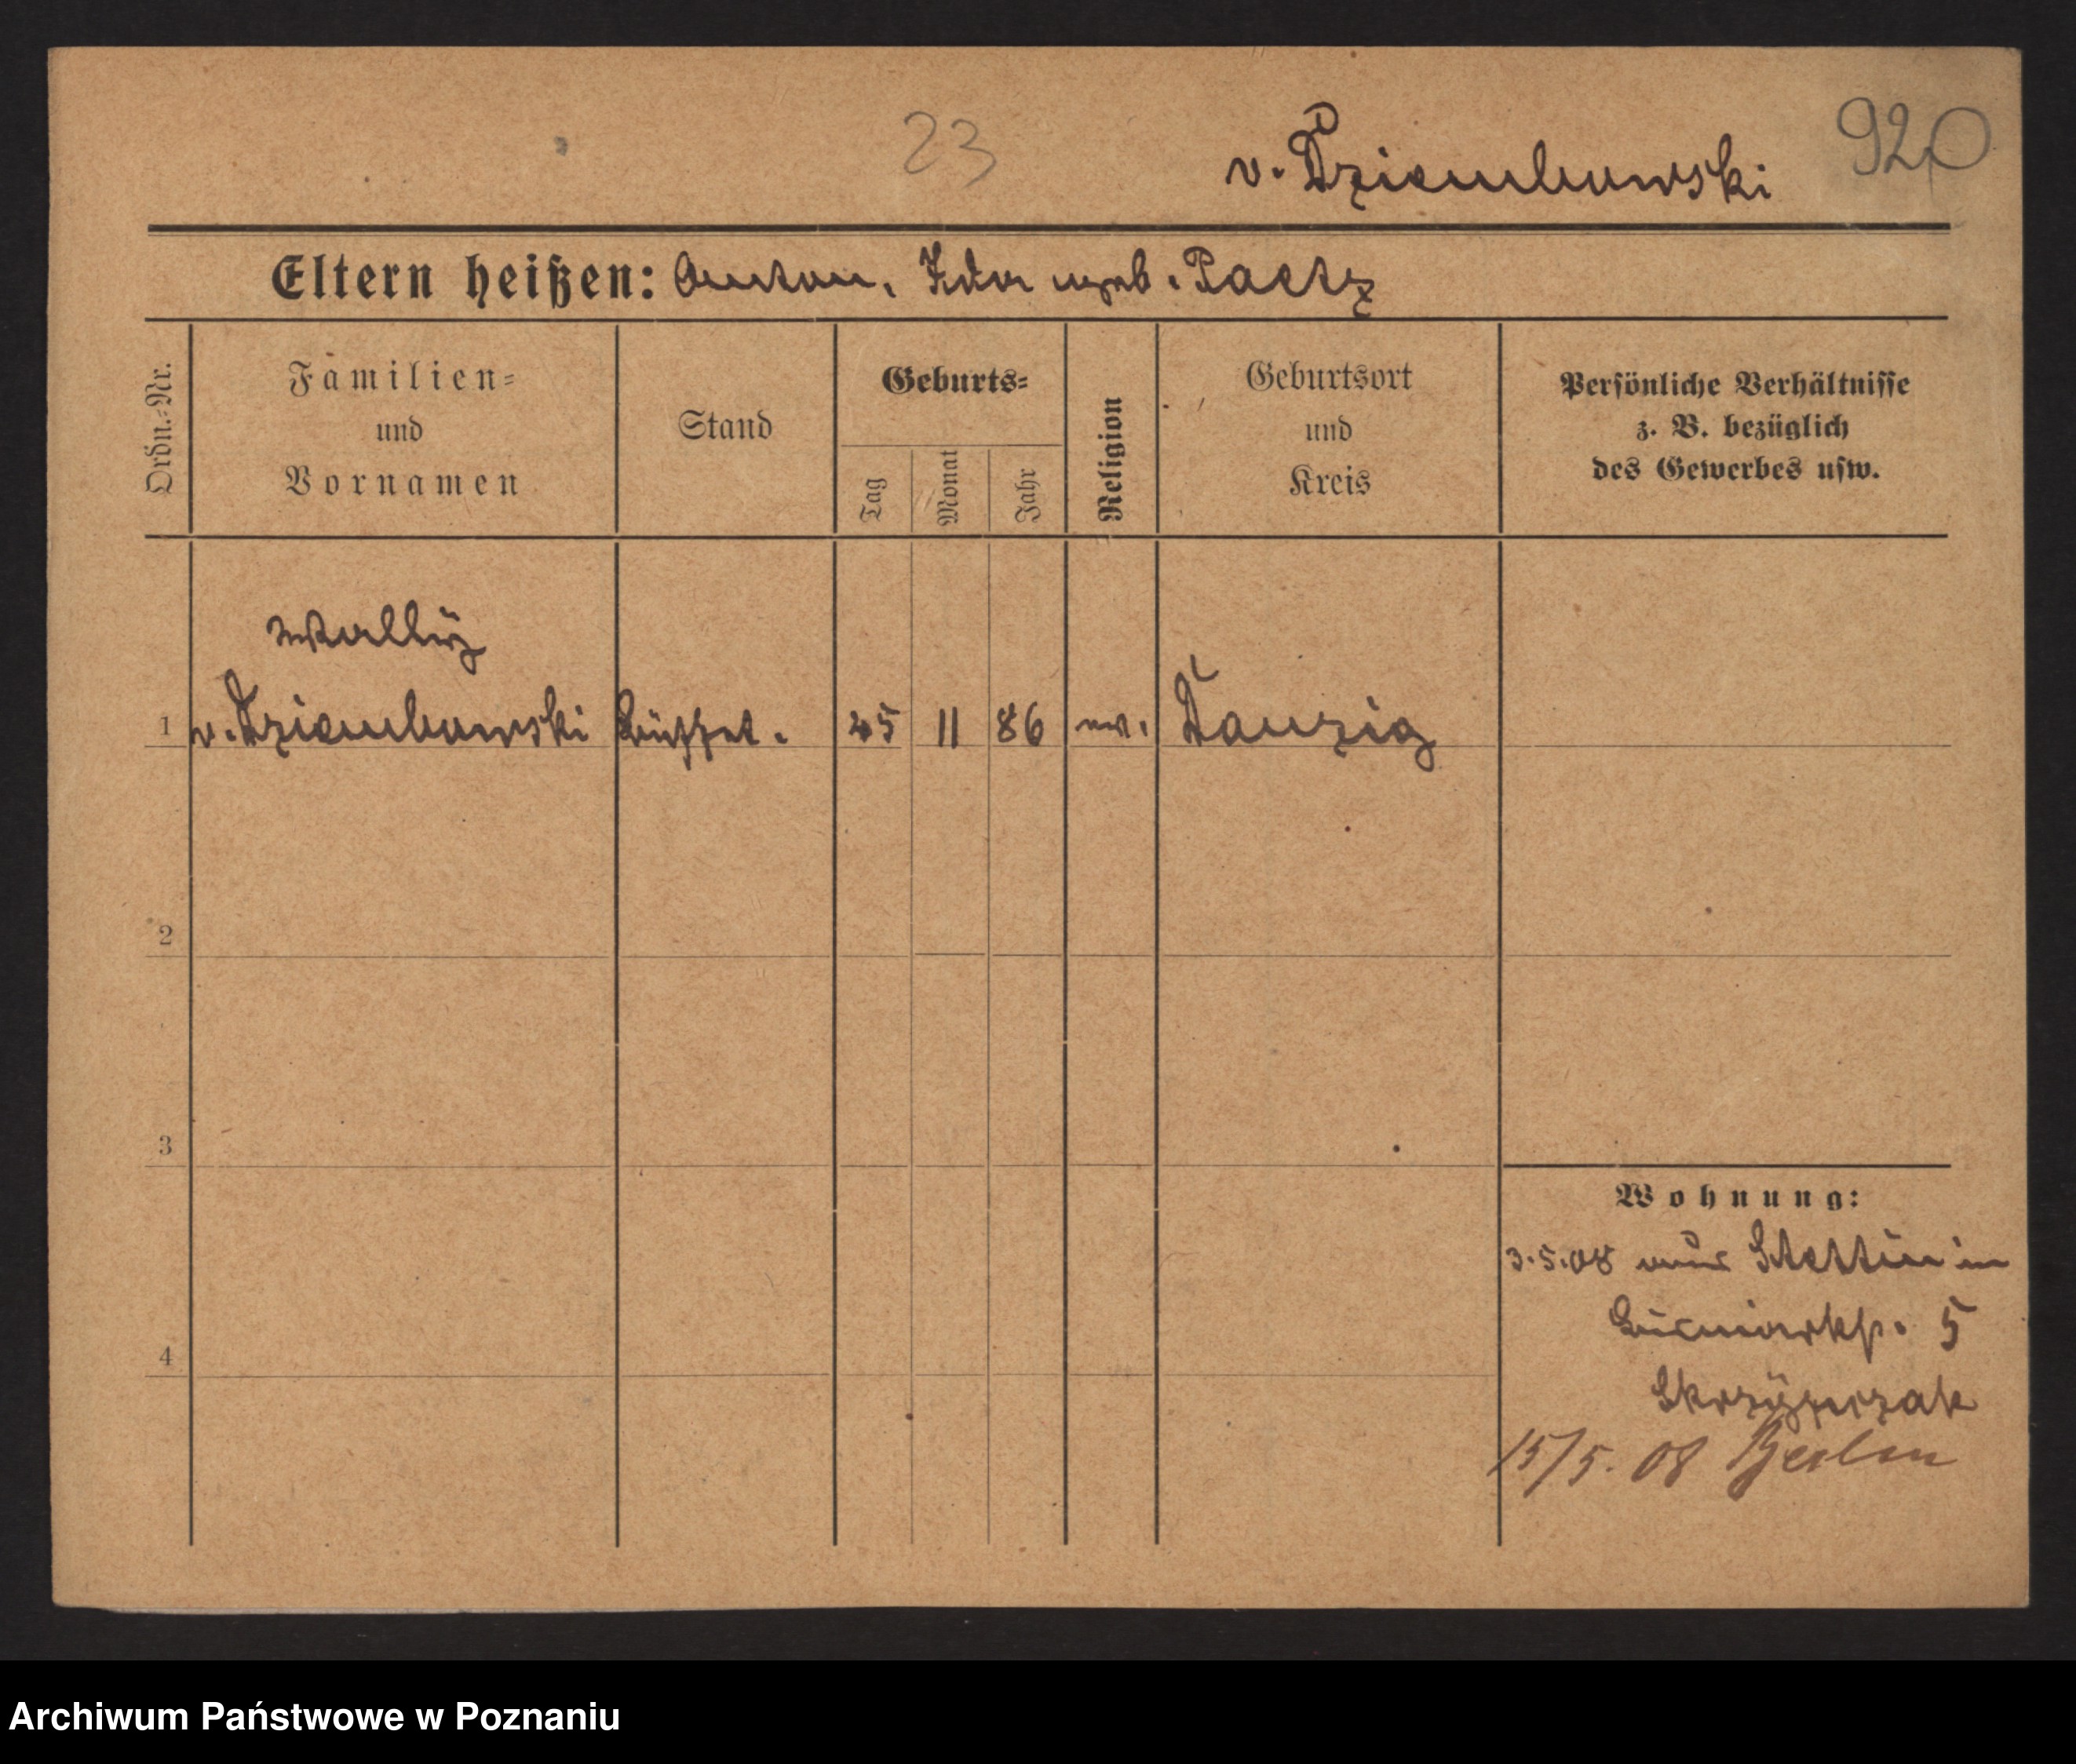 23
v. Dziembowski
920
Eltern heißen: Anton, Ida geb. Paetz
Ordn.-Nr.
Familien=
und
Vornamen
Stand
Geburts=
Tag
Monat
Jahr
Religion
Geburtsort
und
Kreis
Persönliche Verhältnisse
z. B. bezüglich
des Gewerbes usw.
Wally
1 v. Dziembowski Büffet. 25 11 86 ev. Danzig
2
3
4
Wohnung:
3.5.08 aus Stettin in
5
Skrzypczak
15/5. 08 Berlin
Archiwum Państwowe w Poznaniu